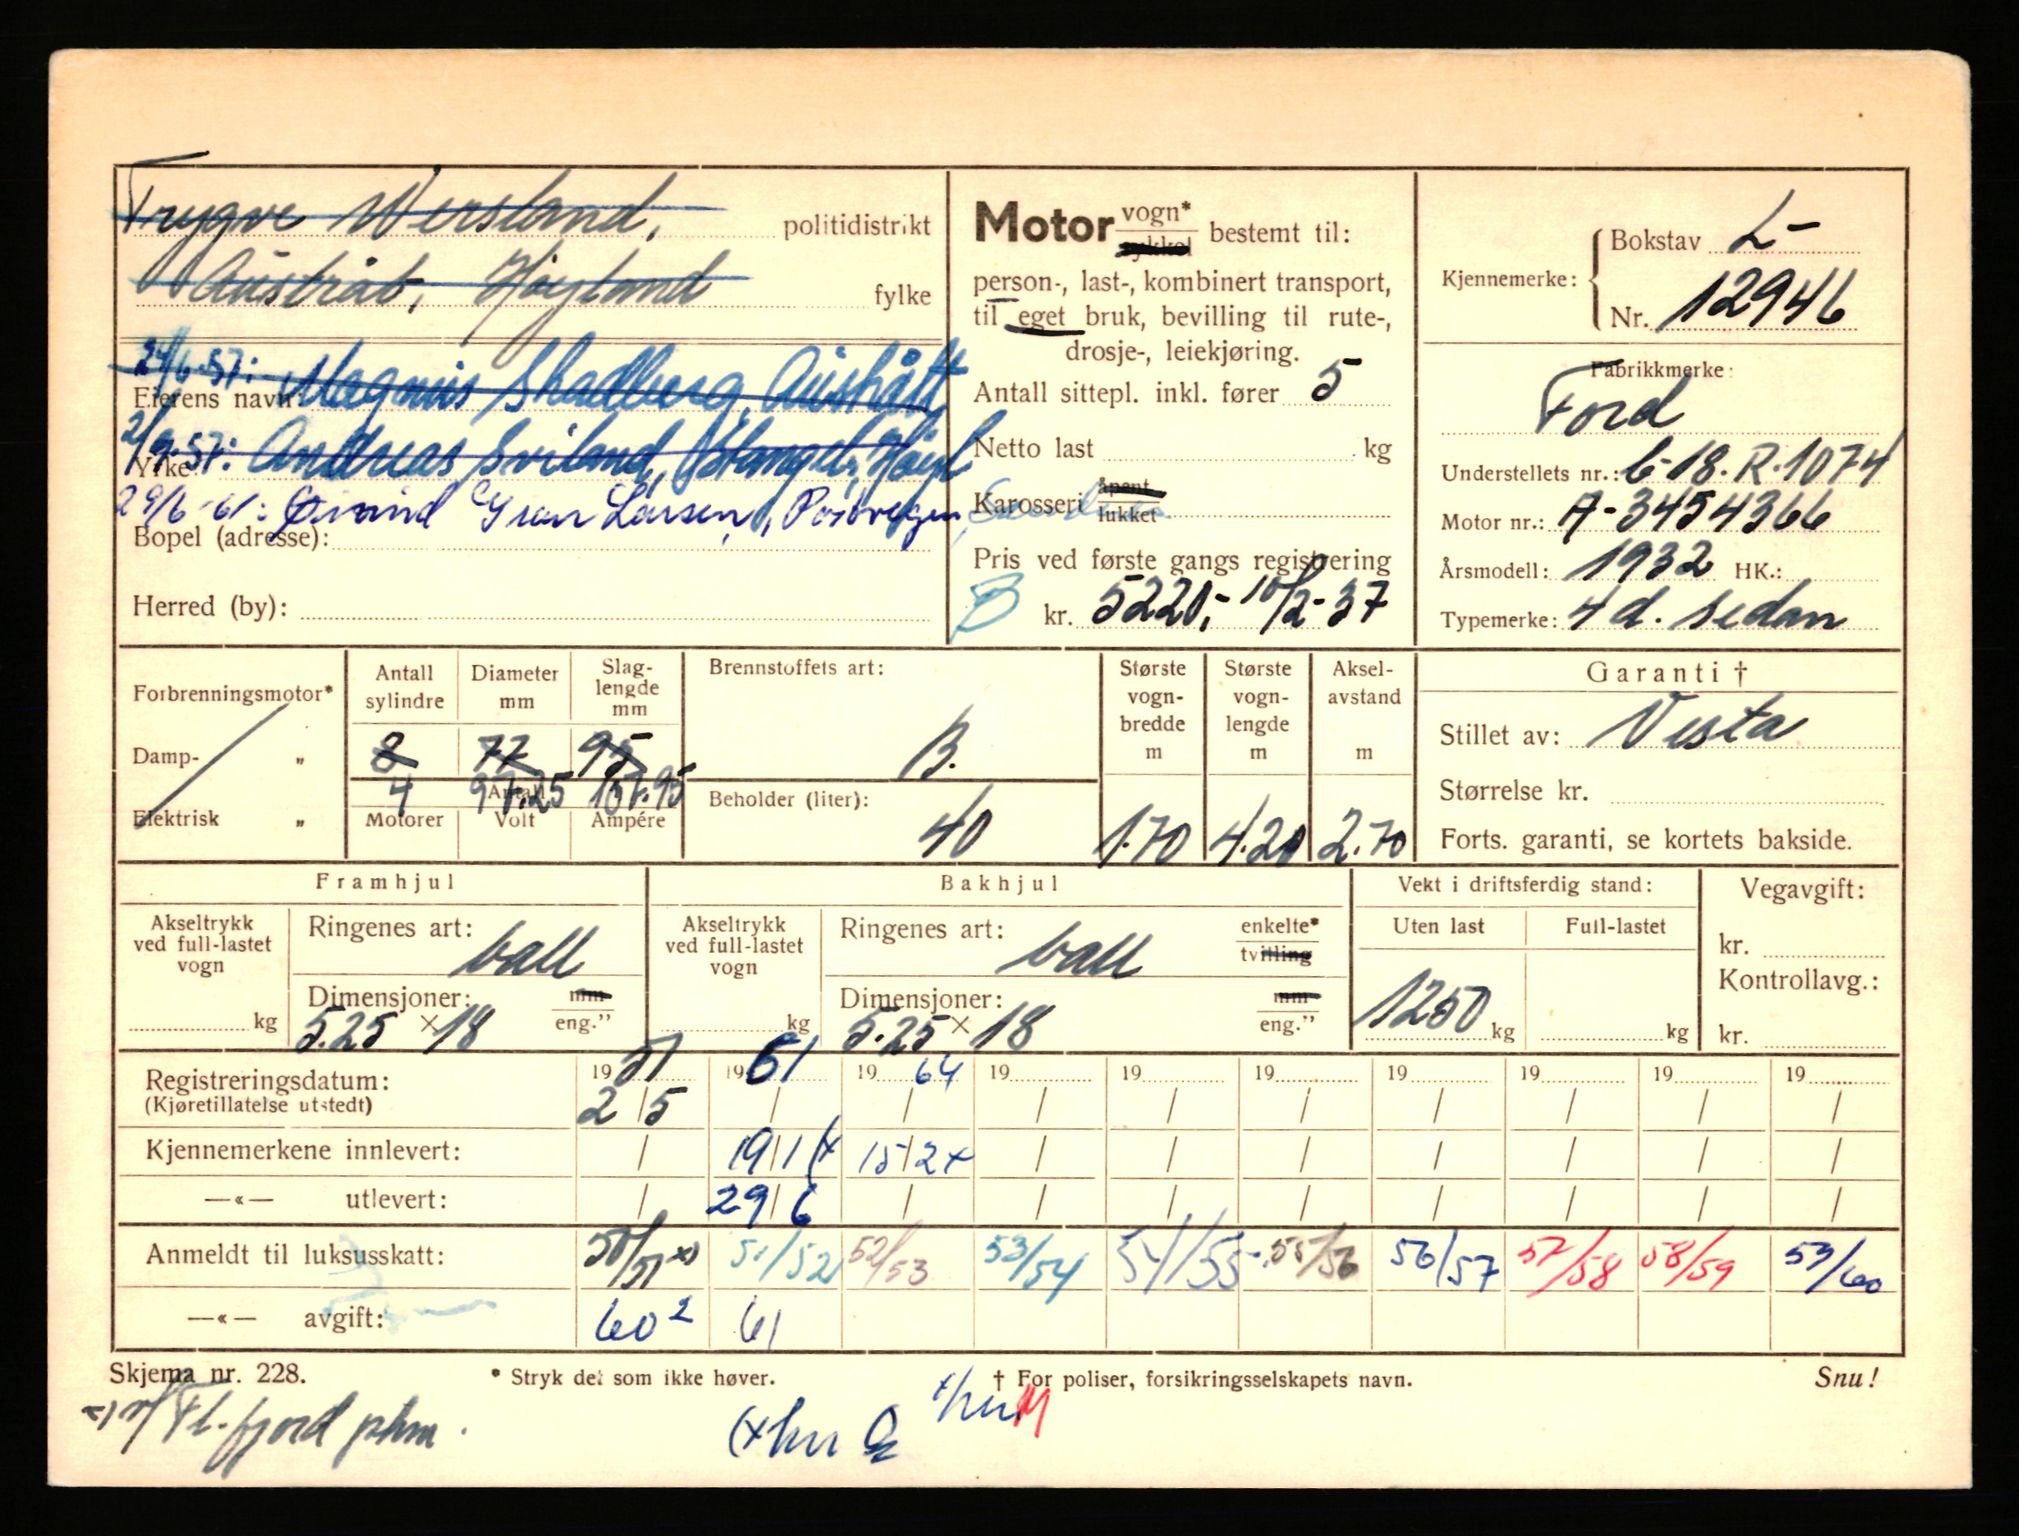 Trygve Wersland, politidistrikt
Austråt, Høyland fylke
24/6-57: Magnus Skadberg, Austrått
Eierens navn:
2/9-57: Andreas Sviland, Stangel., Høyl
Yrke
29/6-61: Øivind Gran Larsen, Postvegen
Bopel (adresse):
Herred (by):
Motor vogn* sykkel bestemt til:
person-, last-, kombinert transport,
til eget bruk, bevilling til rute-,
drosje-, leiekjøring.
Antall sittepl. inkl. fører 5
Netto last kg
Karosseri åpent lukket
Pris ved første gangs registrering
B kr. 5220,- 10/2-37
Kjennemerke: Bokstav L-
Nr. 12946
Fabrikkmerke:
Ford
Understellets nr.: 6-18.R.1074
Motor nr.: A-3454366
Årsmodell: 1932 HK.:
Typemerke: 4 d. sedan
Forbrenningsmotor*
Damp- „
Elektrisk „
Antall sylindre
Diameter mm
Slaglengde mm
8 77 95
4 97.25 107.95
Antall
Motorer Volt Ampére
Brennstoffets art:
B.
Beholder (liter):
40
Største vognbredde m
1.70
Største vognlengde m
4.20
Akselavstand m
2.70
Garanti †
Stillet av: Vesta
Størrelse kr.
Forts. garanti, se kortets bakside.
Framhjul
Akseltrykk ved full-lastet vogn
kg
Ringenes art: ball
Dimensjoner: mm eng."
5.25 x 18
Bakhjul
Akseltrykk ved full-lastet vogn
kg
Ringenes art: ball enkelte* tvilling
Dimensjoner: mm eng."
5.25 x 18
Vekt i driftsferdig stand:
Uten last Full-lastet
1250 kg kg
Vegavgift:
kr.
Kontrollavg.:
kr.
Registreringsdatum: 1951 1961 1964 19 19 19 19 19 19 19
(Kjøretillatelse utstedt) 2/5 / / / / / / / / /
Kjennemerkene innlevert: / 19/1 (x 15/2 x / / / / / / /
—«— utlevert: / 29/6 / / / / / / / /
Anmeldt til luksusskatt: 50/51 x) 51/52 52/53 53/54 54/55 55/56 56/57 57/58 58/59 59/60
—«— avgift: 60 2 61
Skjema nr. 228. * Stryk det som ikke høver. † For poliser, forsikringsselskapets navn. Snu!
Fl.fjord phm.